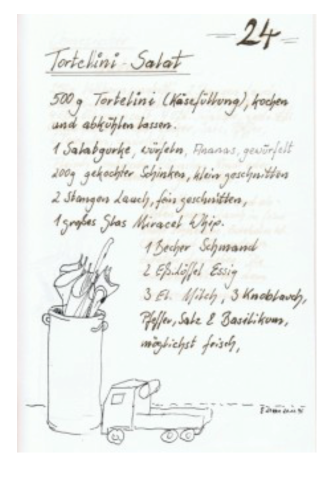 = 24 =
Tortelini - Salat
500 g Tortelini (Käsefüllung), kochen
und abkühlen lassen.
1 Salatgurke, würfeln, Ananas, gewürfelt
200g gekochter Schinken, klein geschnitten
2 Stangen Lauch, fein geschnitten,
1 großes Glas Miracel Whip.
1 Becher Schmand
2 Eßlöffel Essig
3 El. Milch, 3 Knoblauch,
Pfeffer, Salz & Basilikum,
möglichst frisch,